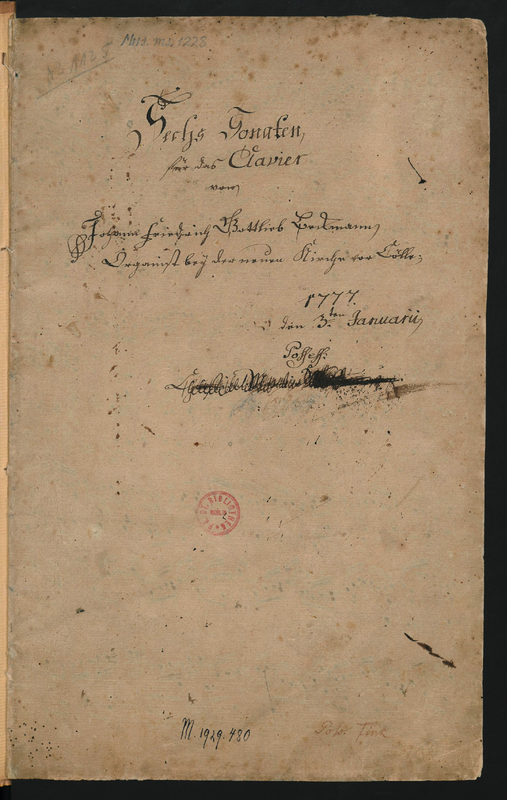 Mus. ms. 1228
Sechs Sonaten,
für das Clavier
von
Johann Friedrich Gottlieb Beckmann,
Organist bey der neuen Kirche vor Celle.
1777.
den 3.ten Januarii,
Possess:
BIBLIOTHEK
BERLIN
M. 1929. 480
Poss. Fink